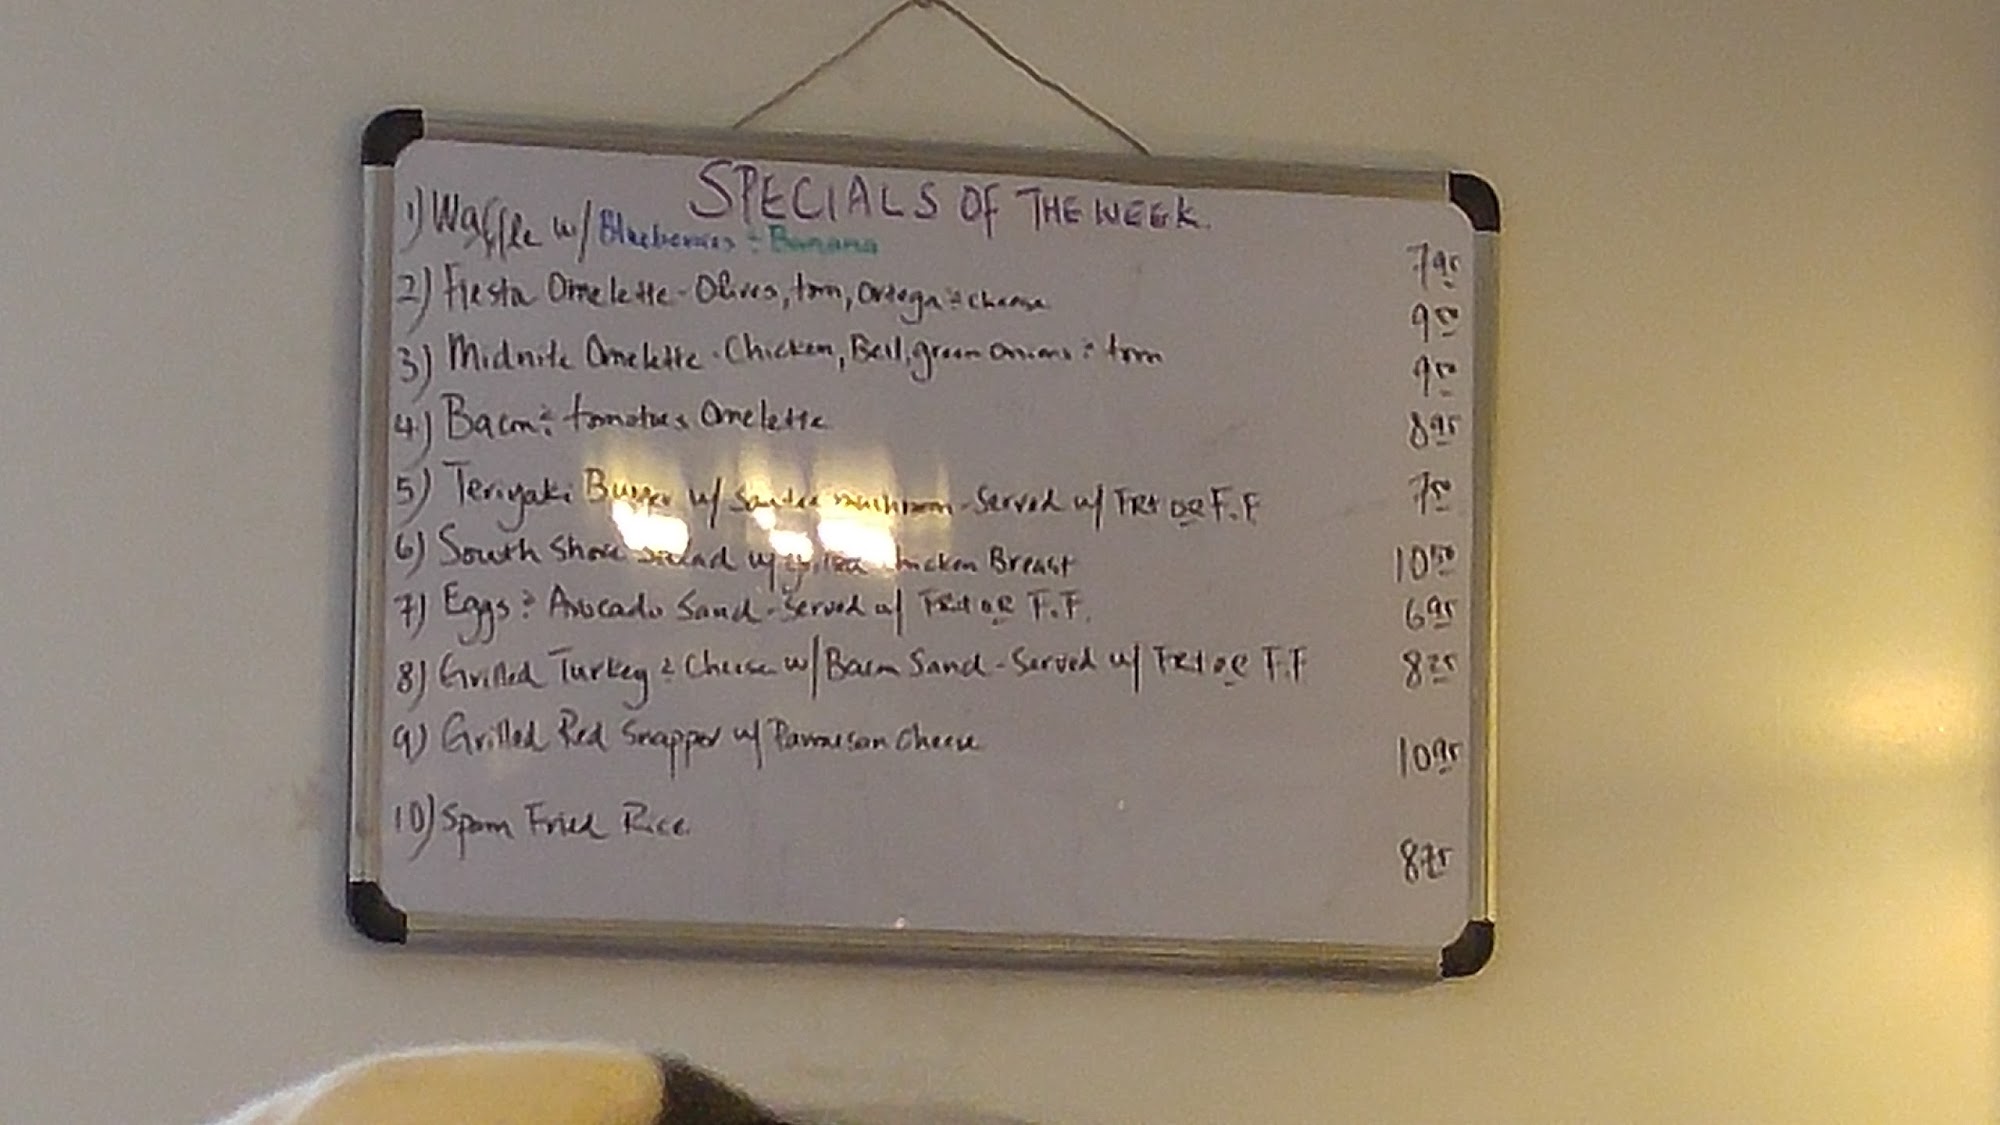 SPECIALS OF THE WEEK.
1) Waffle w/ Blueberries & Banana 7 95
2) Fiesta Omelette - Olives, tom, Ortega & cheese 9 50
3) Midnite Omelette - Chicken, Bell, green onions & tom 9 50
4) Bacon & tomatoes Omelette 8 95
5) Teriyaki Burger w/ mushroom - Served w/ FRt OR F.F 7 50
6) South Shore Salad w/ grilled Chicken Breast 10 50
7) Eggs & Avocado Sand - Served w/ FRt OR F.F. 6 95
8) Grilled Turkey & Cheese w/ Bacon Sand - Served w/ FRt OR F.F
9) Grilled Red Snapper w/ Parmesan Cheese 10 95
10) Spam Fried Rice